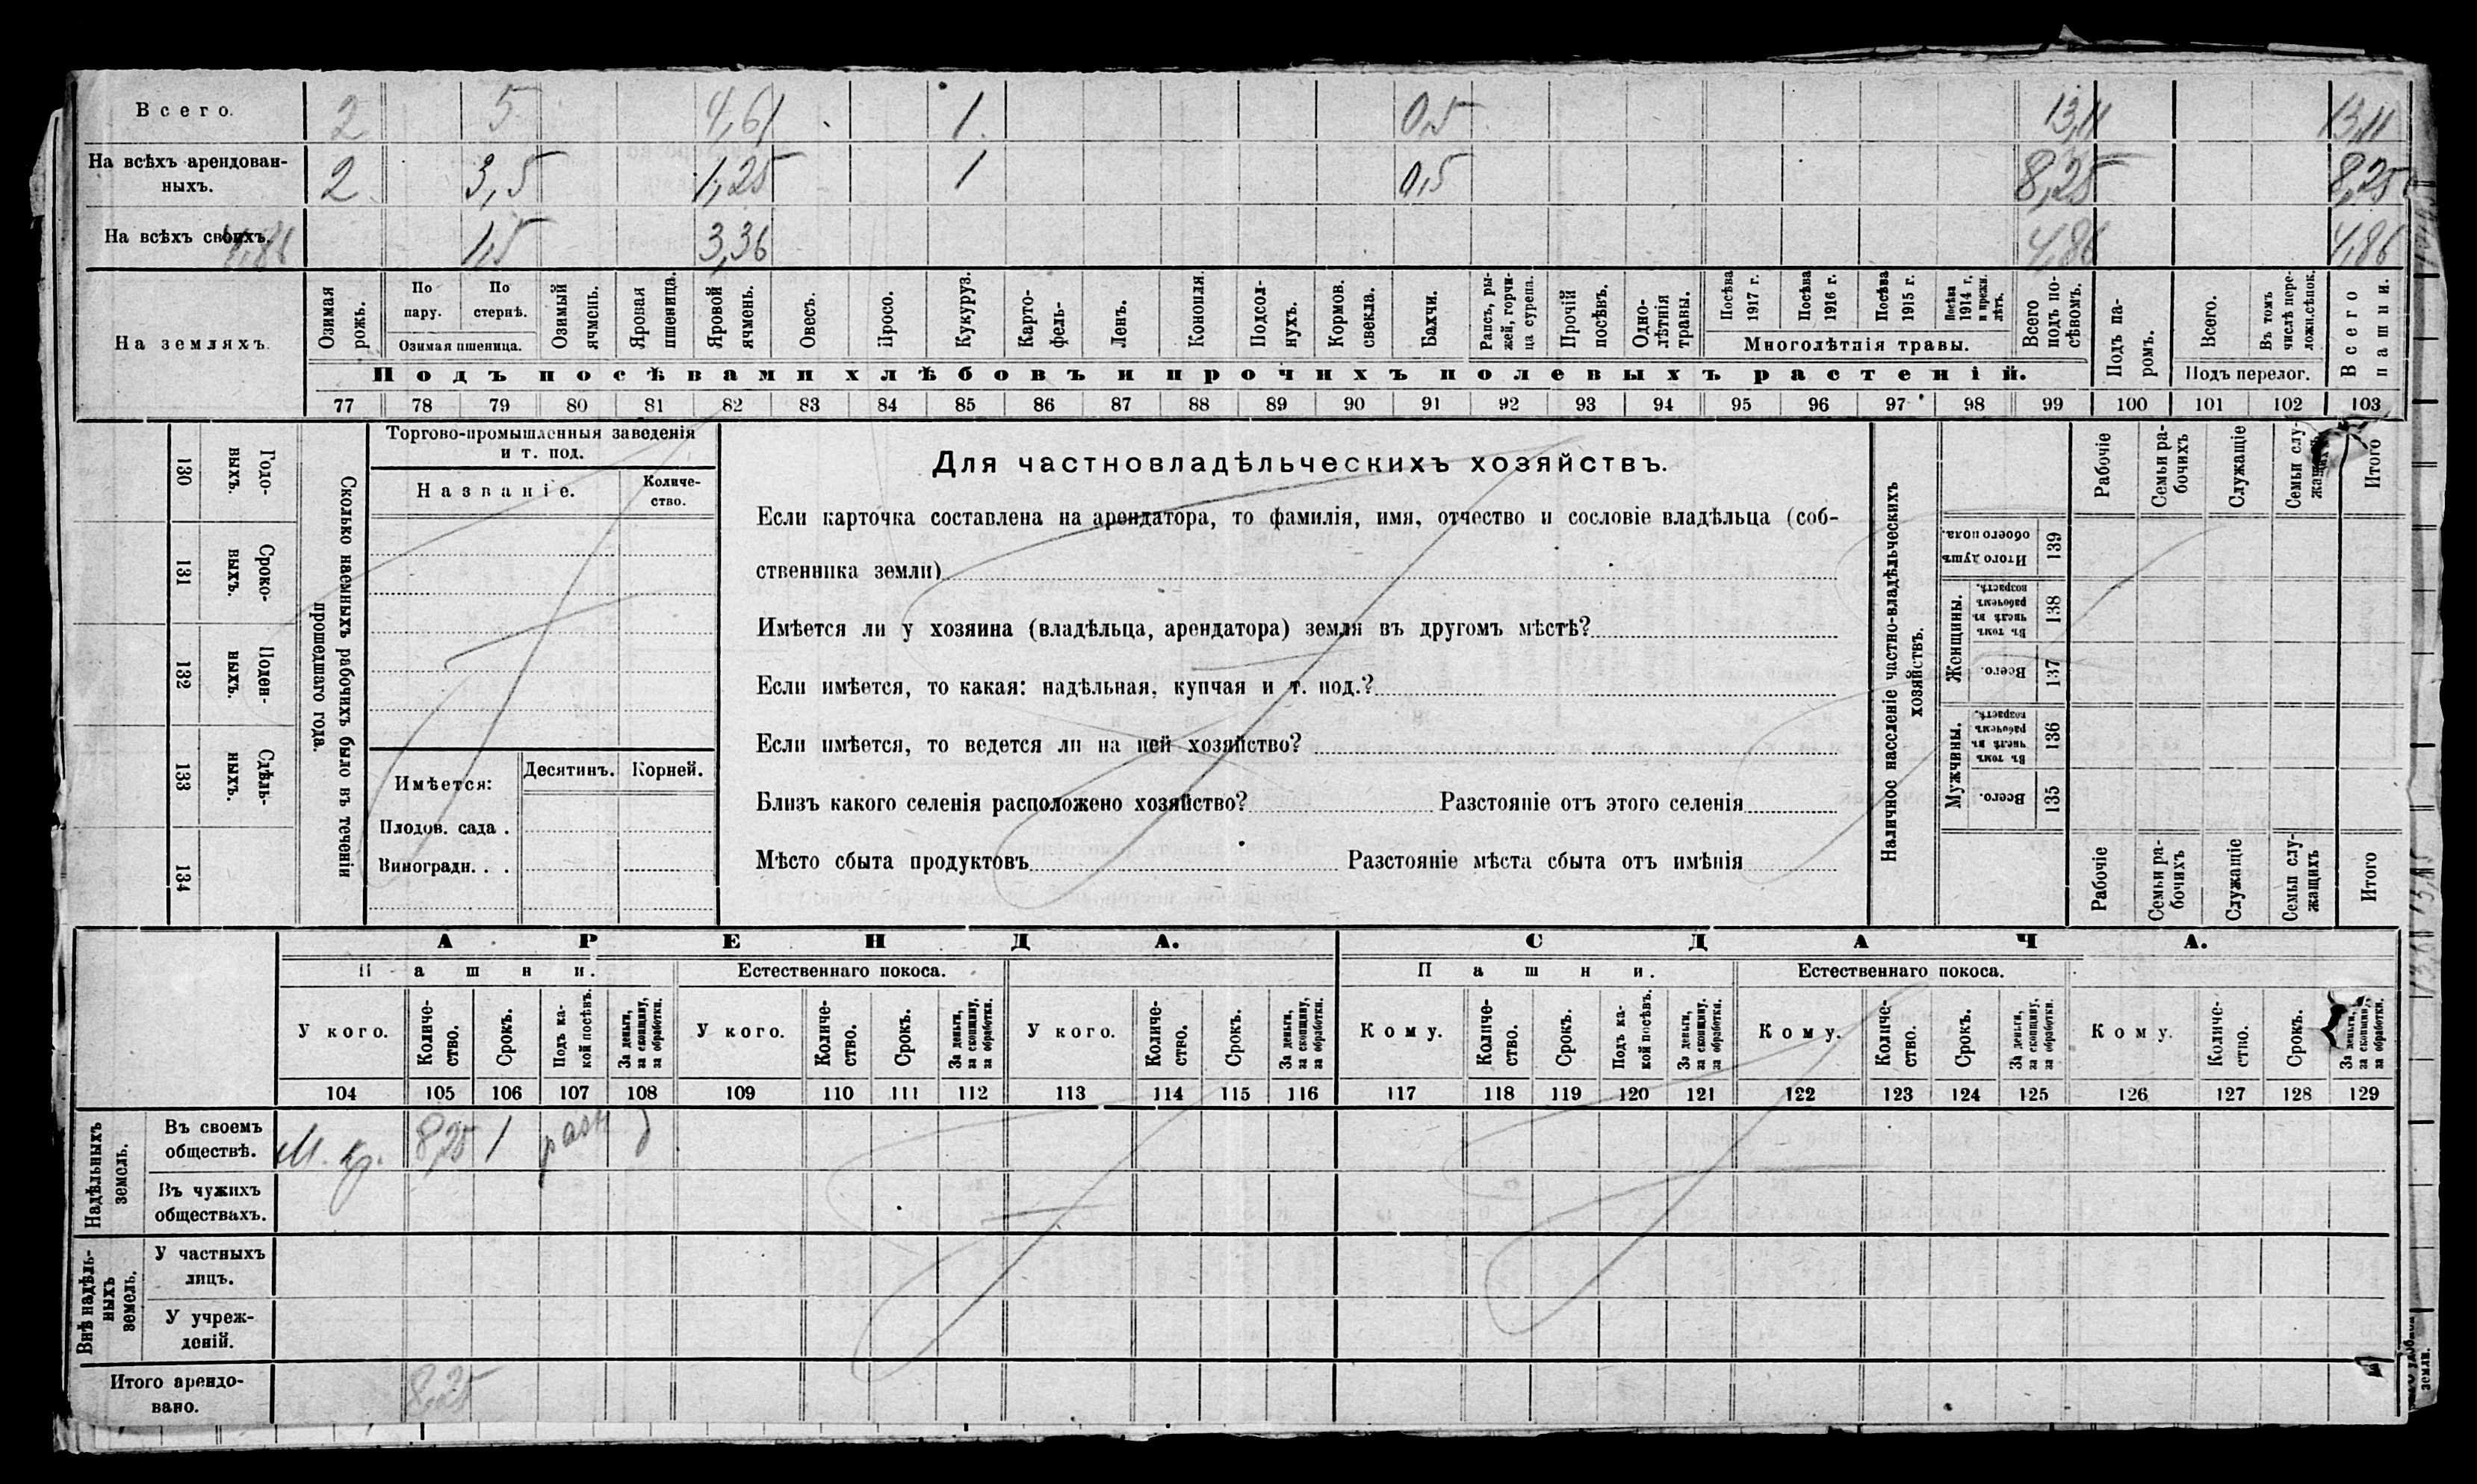 Всего. 2 5 4,61 1 0,5 13,11 13,11
На всѣхъ арендован-
ныхъ. 2 3,5 1,25 1 0,5 8,25 8,25
На всѣхъ своихъ. 4,86 1,5 3,36 4,86 4,86
На земляхъ.
Озимая рожь.
По пару.
По стернѣ.
Озимая пшеница.
Озимый ячмень.
Яровая пшеница.
Яровой ячмень.
Овесъ.
Просо.
Кукуруз.
Карто-
фель-
Ленъ.
Конопля.
Подсол-
нухъ.
Кормов. свекла.
Бахчи.
Рапсъ, ры-
жей, горчи-
ца сурепа.
Прочій посѣвъ.
Одно-
лѣтнія травы.
Посѣва 1917 г.
Посѣва 1916 г.
Посѣва 1915 г.
Посѣва 1914 г. и прежн. лѣтъ.
Многолѣтнія травы.
Всего подъ по-
сѣвомъ.
Подъ па-
ромъ.
Всего.
Въ томъ числѣ пере-
ложн.сѣнок.
Подъ перелог.
Всего пашни.
Подъ посѣвами хлѣбовъ и прочихъ полевыхъ растеній.
77 78 79 80 81 82 83 84 85 86 87 88 89 90 91 92 93 94 95 96 97 98 99 100 101 102 103
130 Годо-
выхъ.
131 Сроко-
выхъ.
132 Поден-
ныхъ.
133 Сдѣль-
ныхъ.
134
Сколько наемныхъ рабочихъ было въ теченіи
прошедшаго года.
Торгово-промышленныя заведенія
и т. под.
Названіе.
Количе-
ство.
Имѣется: Десятинъ. Корней.
Плодов. сада .
Виноградн. . .
Для частновладѣльческихъ хозяйствъ.
Если карточка составлена на арендатора, то фамилія, имя, отчество и сословіе владѣльца (соб-
ственника земли)
Имѣется ли у хозяина (владѣльца, арендатора) земля въ другомъ мѣстѣ?
Если имѣется, то какая: надѣльная, купчая и т. под.?
Если имѣется, то ведется ли на ней хозяйство?
Близъ какого селенія расположено хозяйство? Разстояніе отъ этого селенія
Мѣсто сбыта продуктовъ Разстояніе мѣста сбыта отъ имѣнія
Наличное населеніе частно-владѣльческихъ
хозяйствъ.
Рабочіе
Семьи ра-
бочихъ
Служащіе
Семьи слу-
жащихъ
Итого
Итого душъ обоего пола. 139
Женщины.
Въ томъ числѣ въ рабочемъ возрастѣ. 138
Всего. 137
Мужчины.
Въ томъ числѣ въ рабочемъ возрастѣ. 136
Всего. 135
Рабочіе
Семьи ра-
бочихъ
Служащіе
Семьи слу-
жащихъ
Итого
АРЕНДА. СДАЧА.
Пашни. Естественнаго покоса. Пашни. Естественнаго покоса.
У кого.
Количе-
ство.
Срокъ.
Подъ ка-
кой посѣвъ.
За деньги, за скопщину, за обработки.
У кого.
Количе-
ство.
Срокъ.
За деньги, за скопщину, за обработки.
У кого.
Количе-
ство.
Срокъ.
За деньги, за скопщину, за обработки.
Кому.
Количе-
ство.
Срокъ.
Подъ ка-
кой посѣвъ.
За деньги, за скопщину, за обработки.
Кому.
Количе-
ство.
Срокъ.
За деньги, за скопщину, за обработки.
Кому.
Количе-
ство.
Срокъ.
За деньги, за скопщину, за обработки.
104 105 106 107 108 109 110 111 112 113 114 115 116 117 118 119 120 121 122 123 124 125 126 127 128 129
Надѣльныхъ земель.
Въ своемъ
обществѣ. М. кр. 8,25 1 разн д
Въ чужихъ
обществахъ.
Внѣ надѣль-
ныхъ земель.
У частныхъ
лицъ.
У учреж-
деній.
Итого арендо-
вано. 8,25
земли.